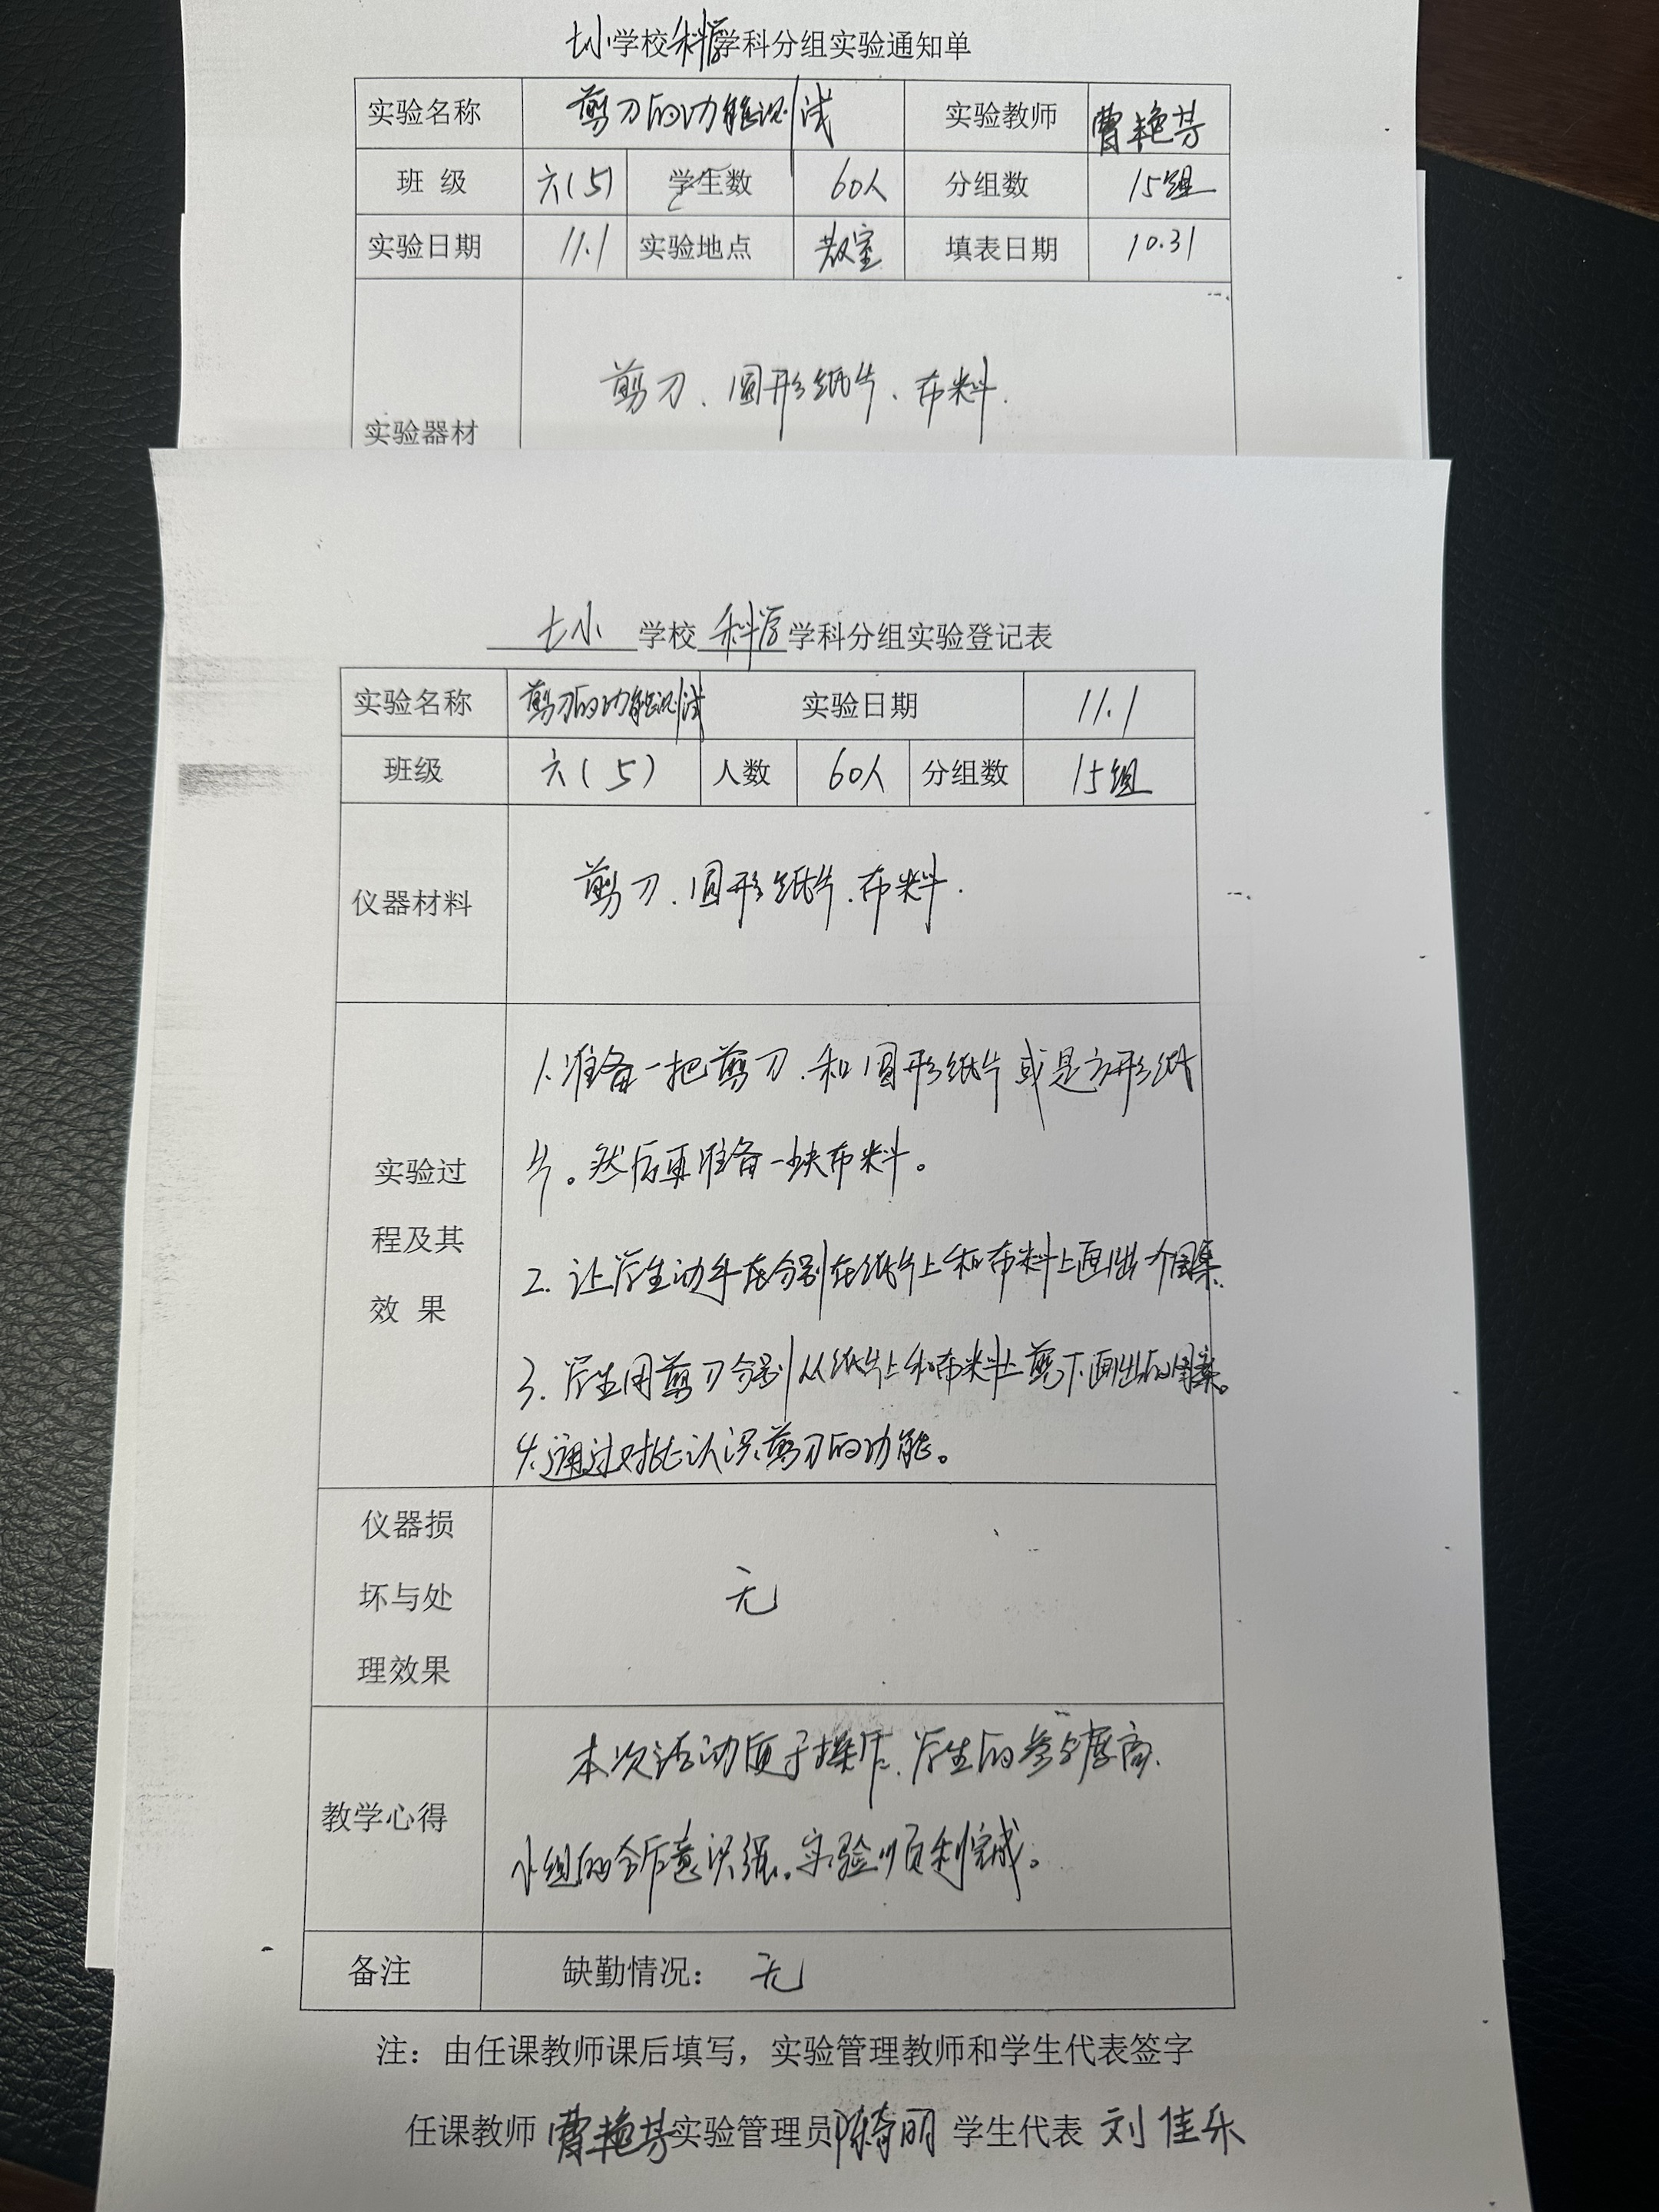 七小学校科学学科分组实验通知单
实验名称 剪刀的功能测试 实验教师 曹艳芳
班 级 六(5) 学生数 60人 分组数 15组
实验日期 11.1 实验地点 教室 填表日期 10.31
剪刀、圆形纸片、布料.
实验器材
七小 学校 科学 学科分组实验登记表
实验名称 剪刀的功能测试 实验日期 11.1
班级 六(5) 人数 60人 分组数 15组
仪器材料 剪刀、圆形纸片、布料.
实验过
程及其
效 果
1.准备一把剪刀、和圆形纸片或是方形纸
片。然后再准备一块布料。
2. 让学生动手在分别在纸片上和布料上画出个图案.
3. 学生用剪刀分别从纸片上和布料上剪下画出的图案。
4.通过对比认识剪刀的功能。
仪器损
坏与处
理效果
无
教学心得
本次活动便于操作、学生的参与度高、
小组的合作意识强。实验顺利完成。
备注 缺勤情况: 无
注：由任课教师课后填写，实验管理教师和学生代表签字
任课教师 曹艳芳 实验管理员 学生代表 刘佳乐